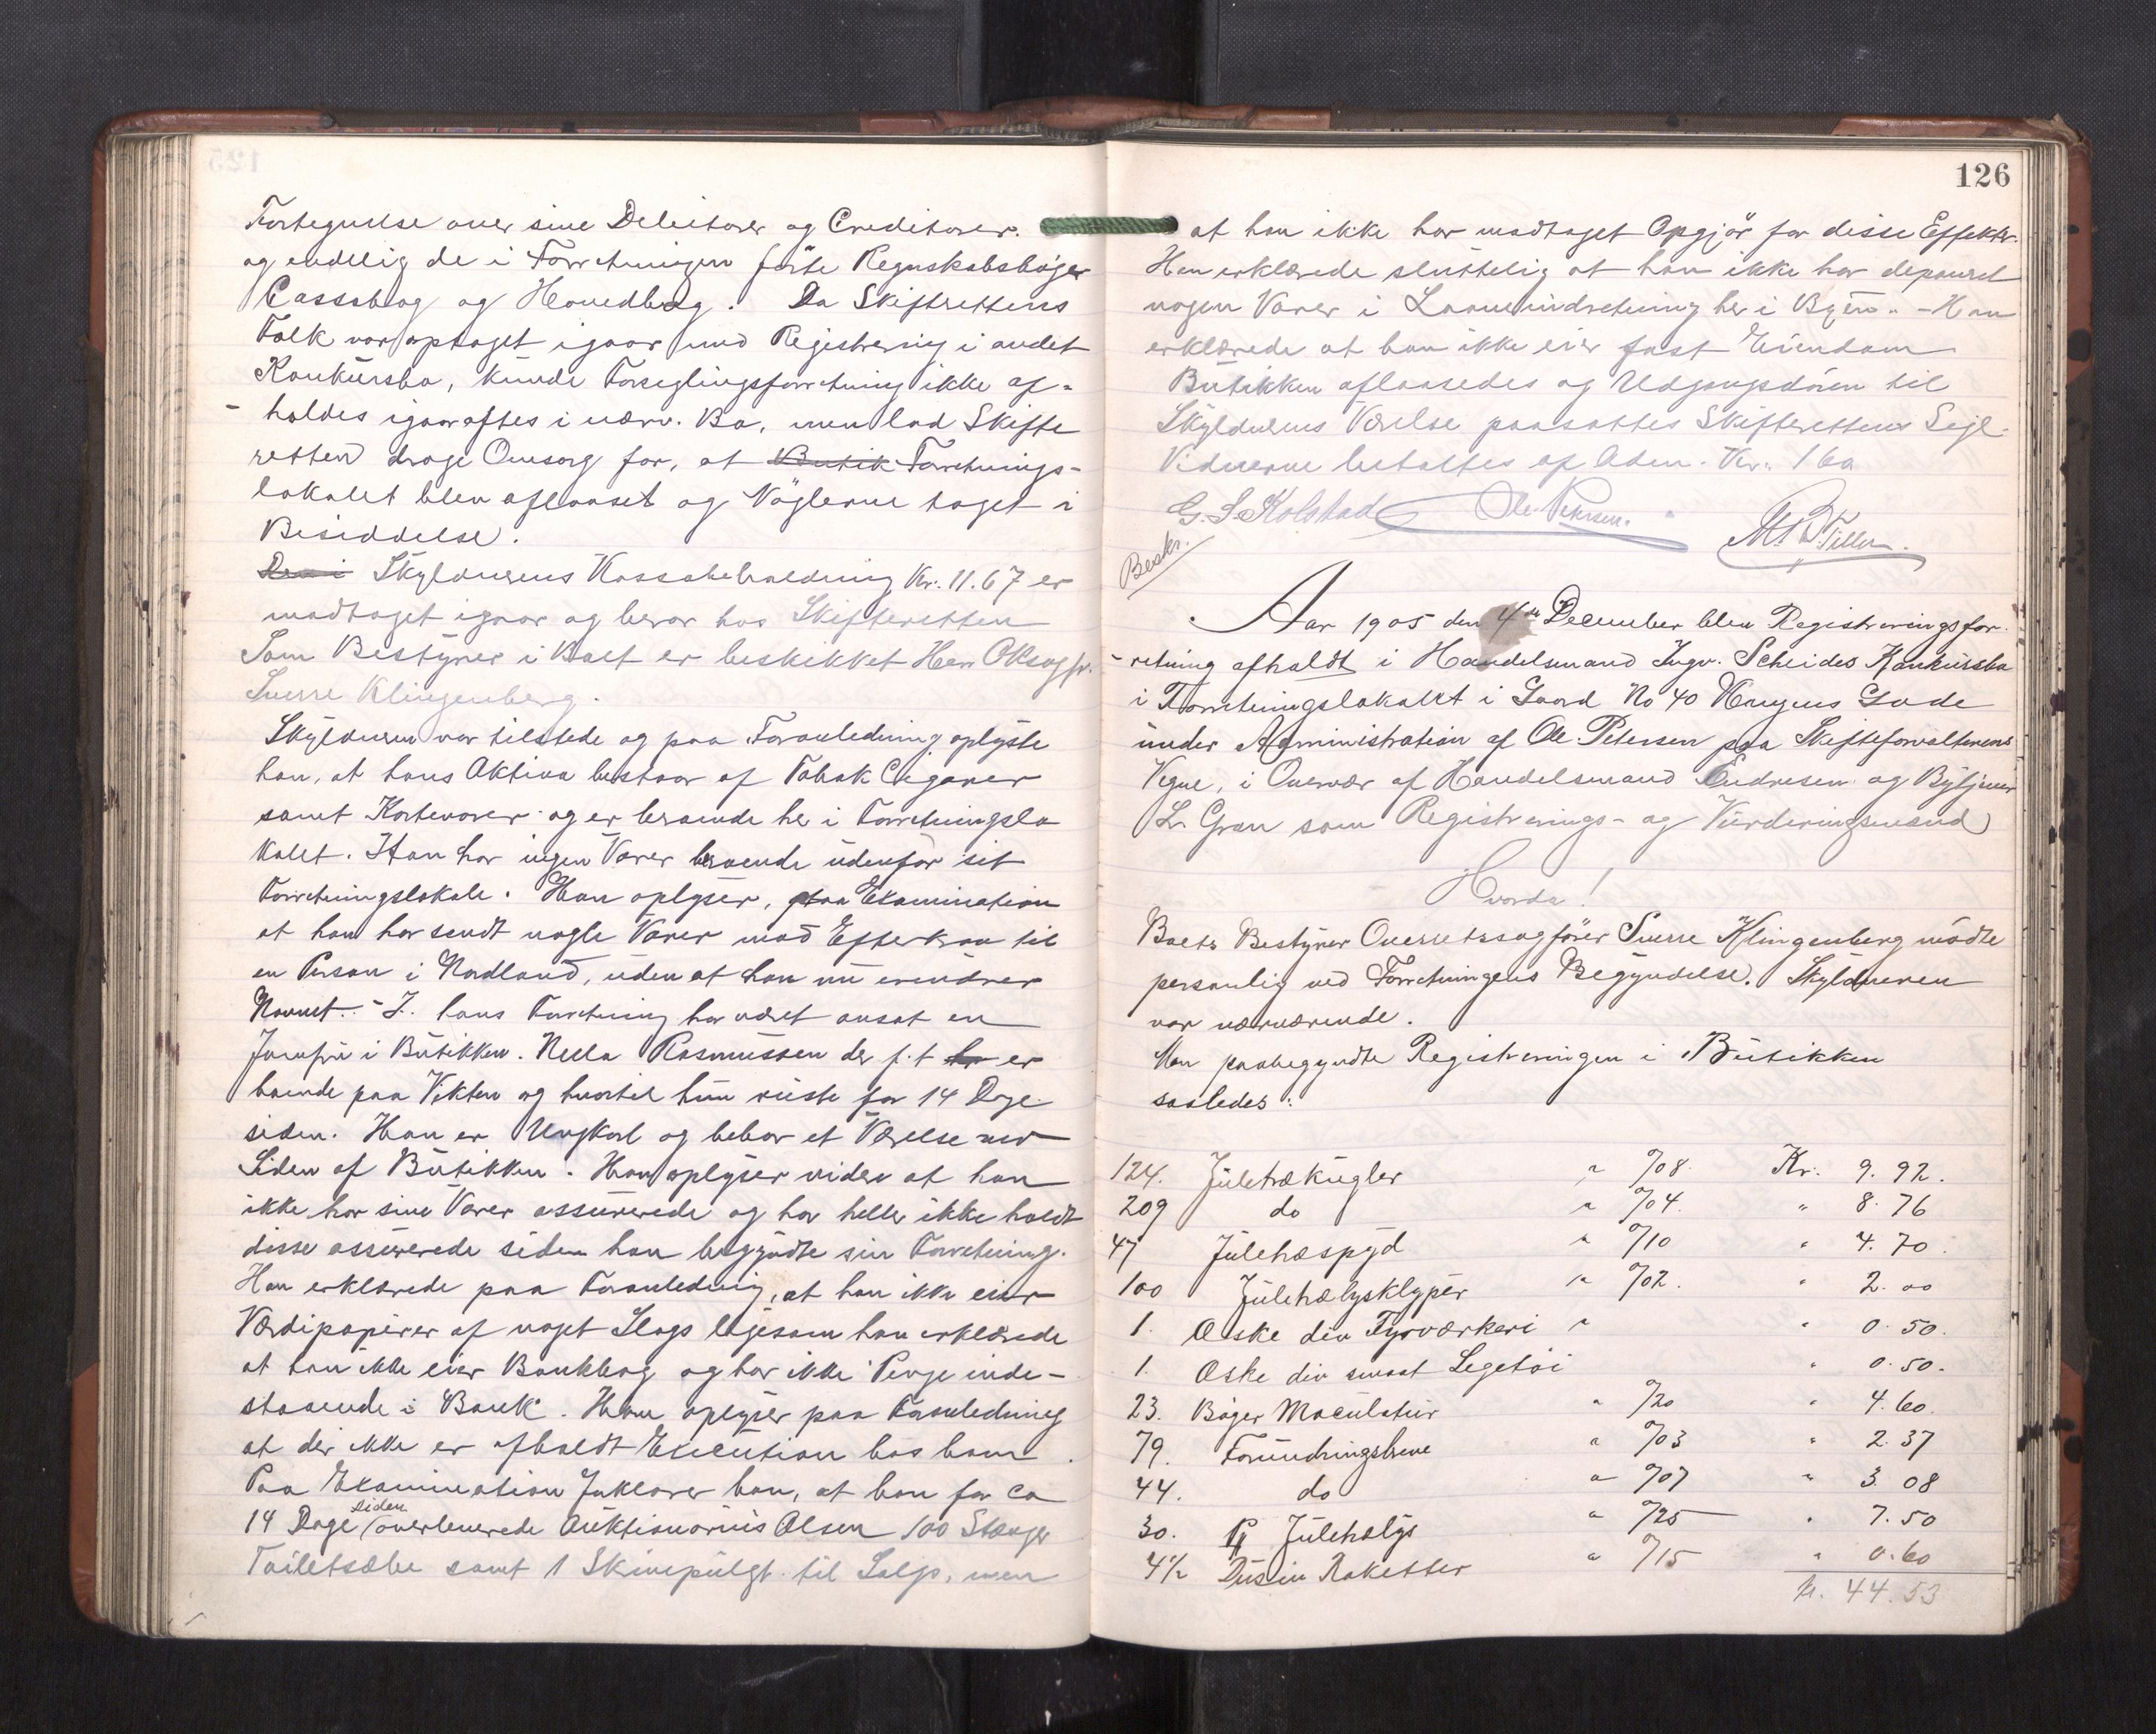 Fortegnelse over sine Debitorer og Creditorer.
og endelig de i Forretningen førte Regnskabsbøger
Cassabog og Hovedbog. Da Skifterettens
Folk var optaget igaar med Registrering i andet
Konkursbo, kunde Forseglingsforretning ikke af-
holdes igaaraftes i nærv. Bo, men lod Skifte
retten drage Omsorg for, at Butik Forretnings-
lokalet blev aflaaset og Nøglerne taget i
Besiddelse.
Den i Skyldnerens Kassabeholdning Kr. 11.67 er
modtaget igaar og beror hos Skifteretten
Som Bestyrer i Boet er beskikket Herr ORsagfr.
Sverre Klingenberg.
Skyldneren var tilstede og paa Foranledning oplyste
han, at hans Aktiva bestaar af Tobak Cigarer
samt Kortevarer og er beroende her i Forretningslo
kalet. Han har ingen Varer beroende udenfor sit
Forretningslokale. Han oplyser, paa Examination
at han har sendt nogle Varer mod Efterkrav til
en Person i Nordland, uden at han nu erindrer
Navnet. - I hans Forretning har været ansat en
Jomfru i Butikken. Nella Rasmussen der f.t. er
boende paa Vikten og hvortil hun reiste for 14 Dage
siden. Han er Ungkarl og bebor et Værelse ved
Siden af Butikken. Han oplyser videre at han
ikke har sine Varer assurerede og har heller ikke holdt
disse assurerede siden han begyndte sin Forretning.
Han erklærede paa Foranledning, at han ikke eier
Værdipapirer af noget Slags ligesom han erklærede
at han ikke eier Bankbog og har ikke Penge inde-
staaende i Bank. Han oplyser paa Foranledning
at der ikke er afholdt Execution hos ham.
Paa Examination forklarer han, at han for ca
14 Dage siden overleverede Auktionarius Olsen 100 Stænger
Toiletsæbe samt 1 til Salgs, men
126
at han ikke har modtaget Opgjør for disse Effekter.
Han erklærede sluttelig at han ikke har deponeret
nogen Varer i Laaneindretning her i Byen. - Han
erklærede at han ikke eier fast Eiendom
Butikken aflaasedes og Udgangsdøren til
Skyldnerens Værelse paasattes Skifterettens Segl.
Vidnerne betaltes af Adm. Kr. 1.60
G. S. Kolstad Ole Petersen. M. Tiller.
Beskr.
Aar 1905 den 4de December blev Registreringsfor-
retning afholdt i Handelsmand Ingv. Scheides Konkursbo
i Forretningslokalet i Gaard No 40 Kongens Gade
under Administration af Ole Petersen paa Skifteforvalterens
Vegne, i Overvær af Handelsmand Endresen og Bytjener
L. Gran som Registrerings- og Vurderingsmænd
Hvorda!
Boets Bestyrer Overretssagfører Sverre Klingenberg mødte
personlig ved Forretningens Begyndelse. Skyldneren
var nærværende.
Man paabegyndte Registreringen i Butikken
saaledes:
124. Juletrækugler a %08 Kr. 9.92.
209 do a %04. " 8.76
47 Juletræspyd " %10 " 4.70.
100 Juletrælysklyper a %02. " 2.00
1. Æske div Fyrværkeri a " 0.50.
1. Æske div smaat Legetøi " 0.50.
23. Bøger Maculatur " %20 " 4.60.
79. Forundringsbreve a %03 " 2.37
44. do a %07 " 3.08
30. Pk Juletrælys a %25 " 7.50
4 1/2 Dusin Raketter a %15 " 0.60
Kr. 44.53